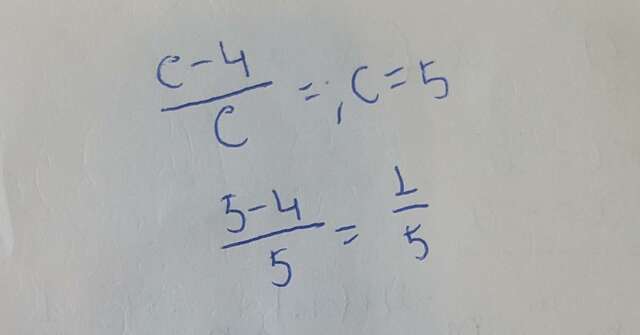 c-4/c = ; c=5
5-4/5 = 1/5